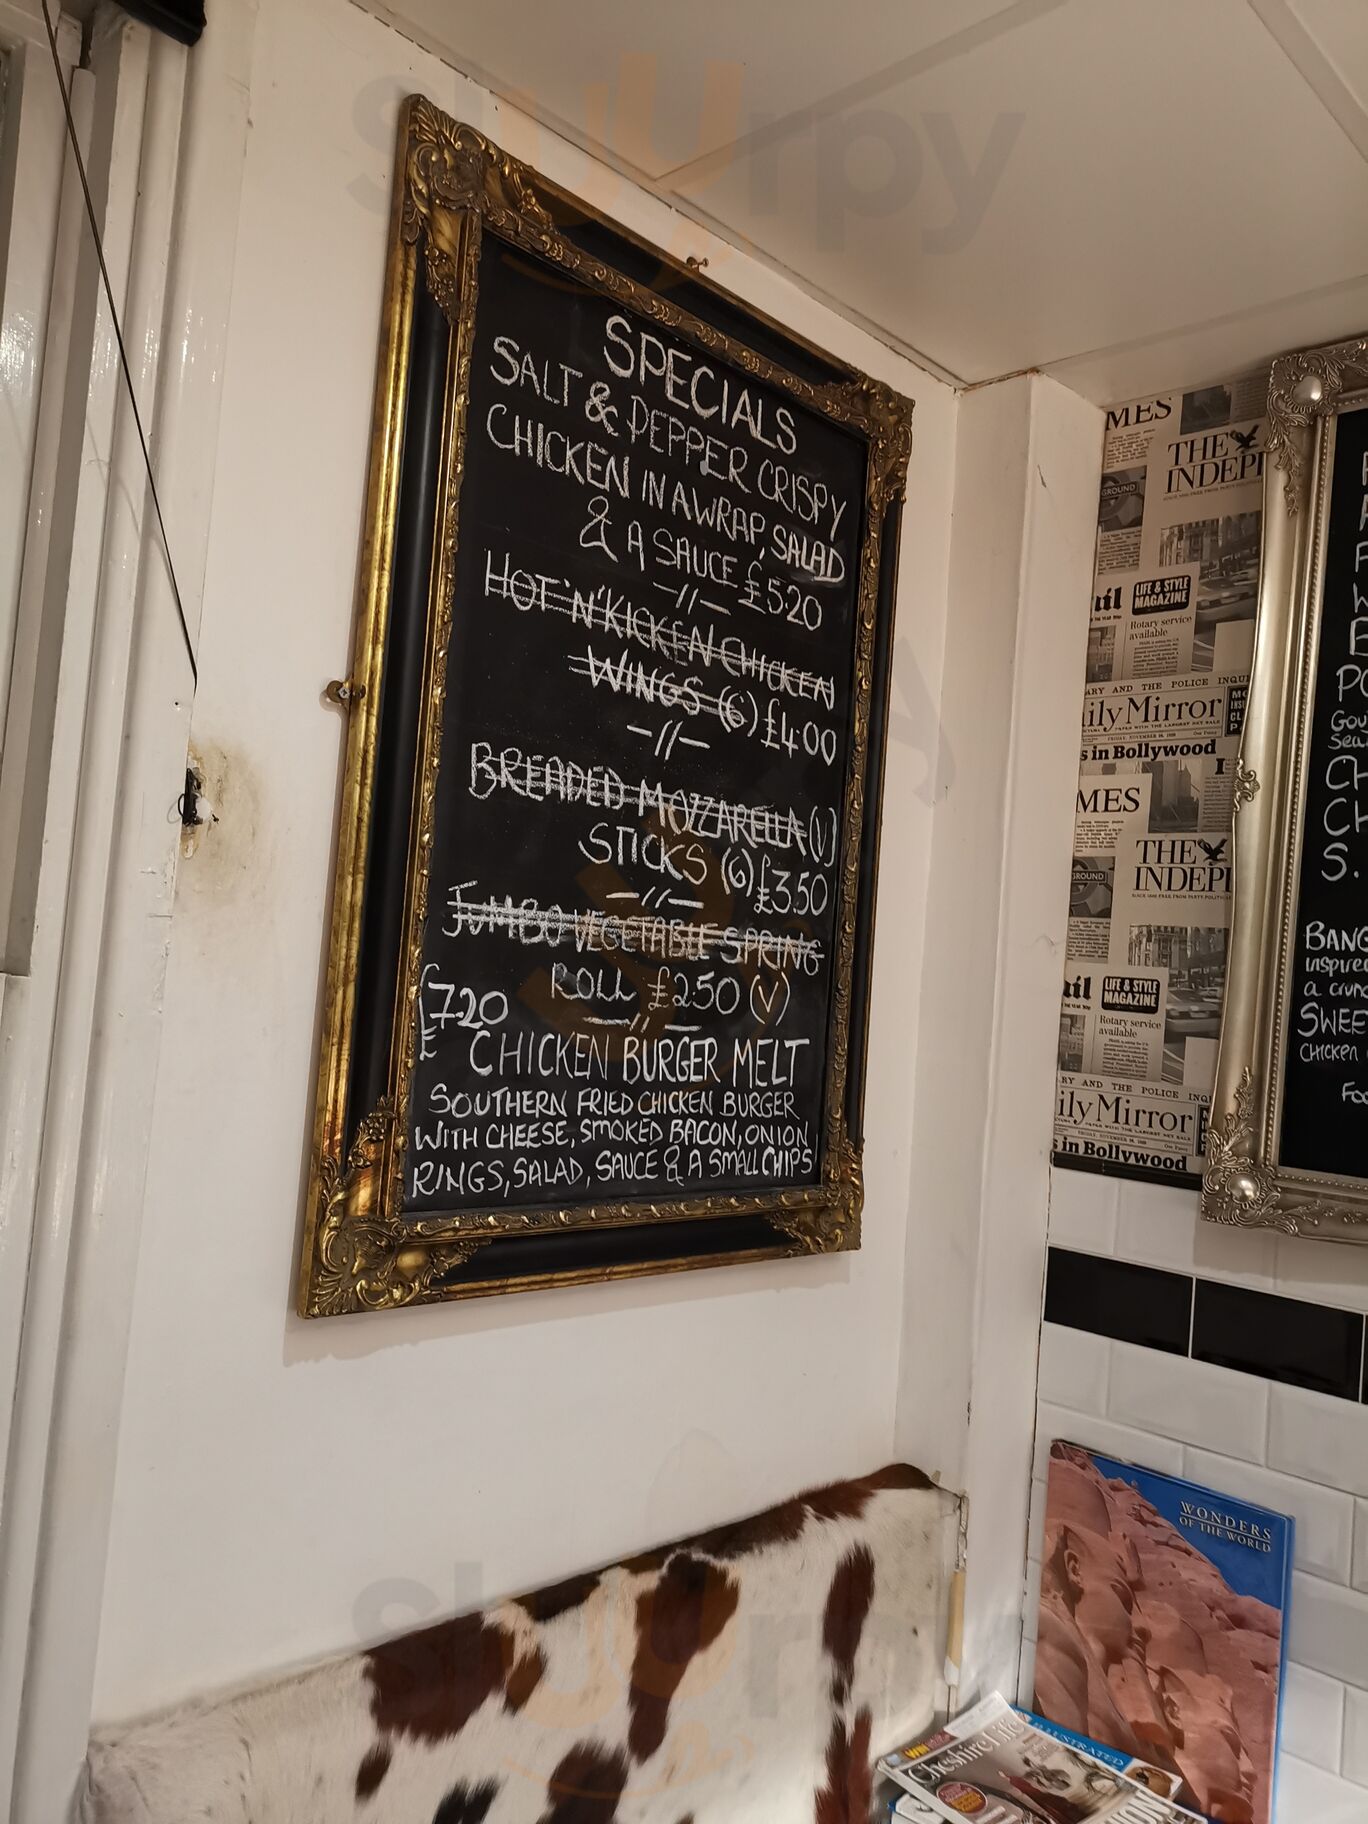 SPECIALS
SALT & PEPPER CRISPY
CHICKEN IN A WRAP, SALAD
& A SAUCE £5.20
HOT 'N' KICKEN CHICKEN
WINGS (6) £4.00
BREADED MOZZARELLA (V)
STICKS (6) £3.50
JUMBO VEGETABLE SPRING
ROLL £2.50 (V)
£7.20
CHICKEN BURGER MELT
SOUTHERN FRIED CHICKEN BURGER
WITH CHEESE, SMOKED BACON, ONION
RINGS, SALAD, SAUCE & A SMALL CHIPS
MES
THE
INDEP
GROUND
LIFE & STYLE
MAGAZINE
ail
Rotary service
available
ARY AND THE POLICE INQU
ily Mirror
s in Bollywood
MES
THE
INDEP
GROUND
ail
LIFE & STYLE
MAGAZINE
Rotary service
available
RY AND THE POLICE INQ
ily Mirror
s in Bollywood
S.
BANG
inspire
a crun
SWEE
CHICKEN
Foo
WONDERS
OF THE WORLD
Cheshire Life
ILLUSTRATED
sluurpy
sluurpy